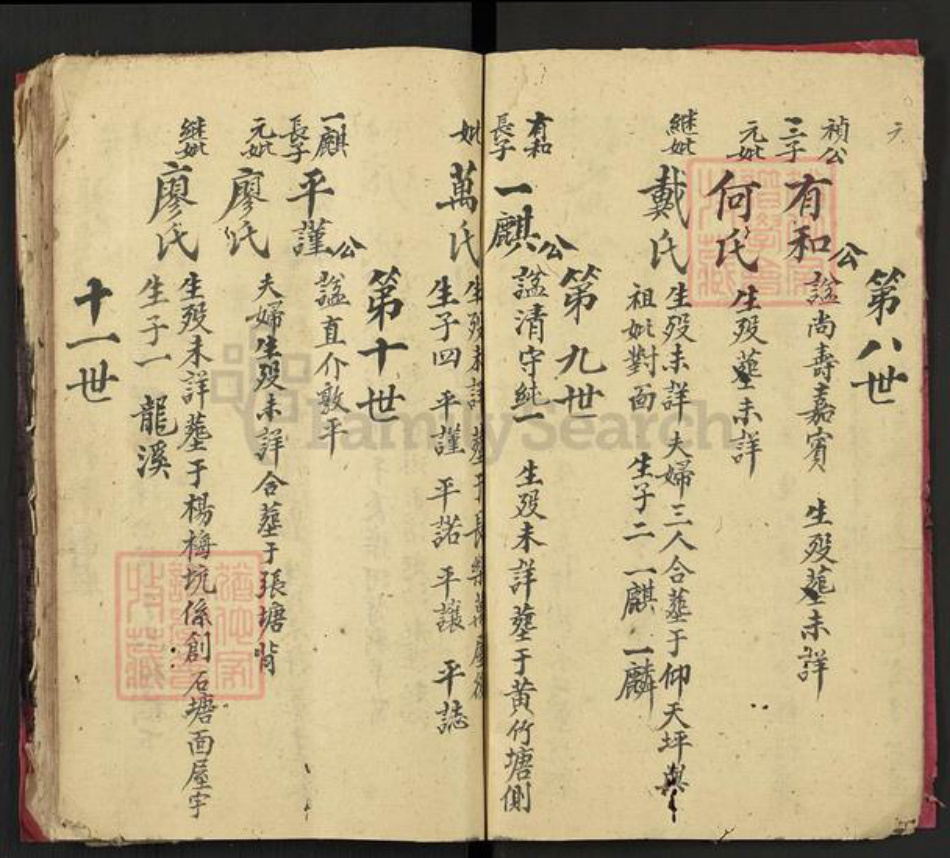 第八世
禎公
三子
有和公 諡尚壽嘉賓 生殁塟未詳
元妣
何氏 生殁塟未詳
継妣
戴氏 生殁未詳 夫婦三人合塟于仰天坪與
祖妣對面 生子二 一麒 一麟
第九世
有和
長子
一麒公 諡清守純一 生殁未詳塟于黄竹塘側
妣
萬氏 生殁未詳塟于長樂
生子四 平謹 平諾 平讓 平誌
第十世
一麒
長子
平謹公 諡直介敦平
元妣
廖氏 夫婦生殁未詳合塟于張塘背
継妣
廖氏 生殁未詳塟于楊梅坑係創石塘面屋宇
生子一 龍溪
十一世
FamilySearch